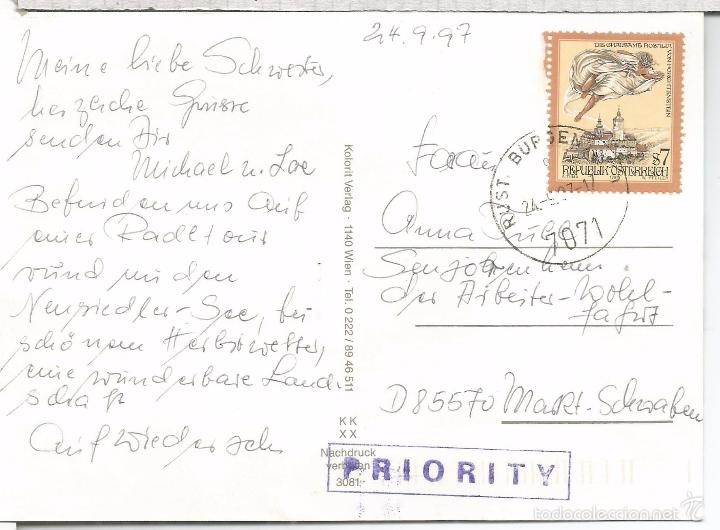 24.9.97
Meine liebe Schwester,
herzliche Grüsse
senden Dir
Michael u.
Befinden uns auf
einer Radltour
rund um den
Neusiedler-See, bei
schönem Herbstwetter,
eine wunderbare Land-
schaft
Auf wiedersehn
Kolorit Verlag · 1140 Wien · Tel. 0 222 / 89 46 511
KK
XX
Nachdruck
verboten
3081
PRIORITY
DIE GRAUSAME ROSALIA
VON FORCHTENSTEIN
S7
REPUBLIK ÖSTERREICH
RUST, BURGENL
24.-9.97-17
7071
Frau
Anna
Seniorenheim
der Arbeiter-Wohl-
fahrt
D85570 Markt-Schwaben
todocoleccion.net